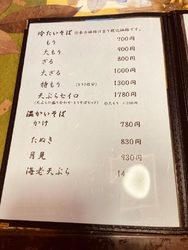 冷たいそば
もり 700円
大もり 900円
ざる 800円
大ざる 1000円
特もり 1300円
天ぷらセイロ 1780円
温かいそば
かけ 780円
たぬき 830円
月見 930円
海老天ぷら 14